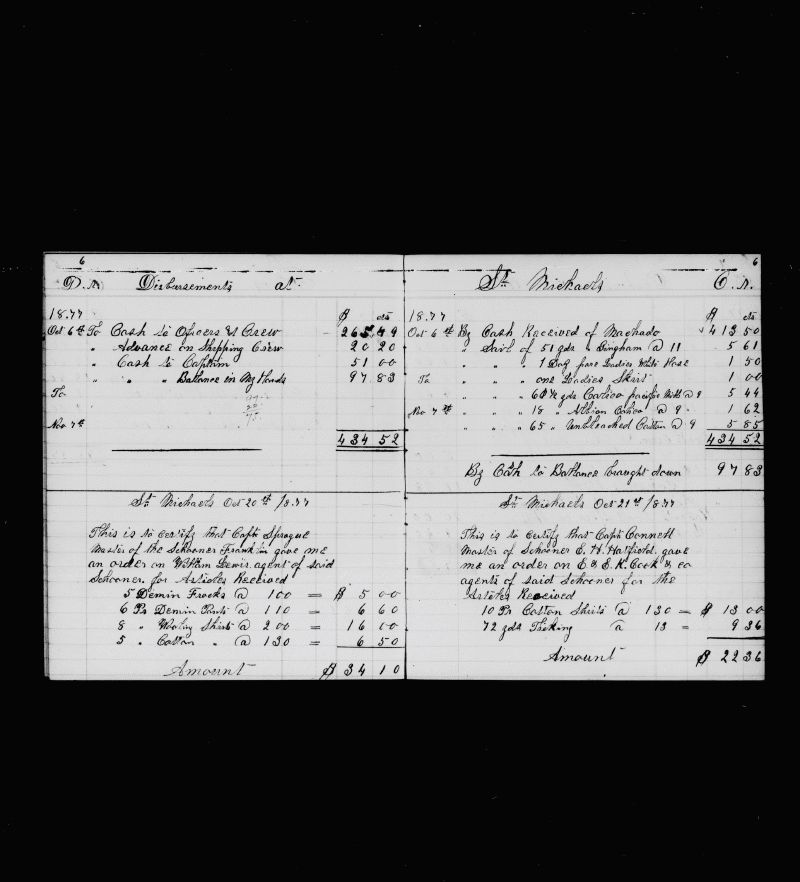 6
D.r Disbursements at
18.77 $ cts
Oct 6th To Cash to Oficers & Crew 265,49
" Advance on Shipping Crew 20 20
" Cash to Captain 51 00
" " " Ballance in My Hands 97 83
To
Nov 7th
434 52
St Michaels Oct 20th /8.77
This is to certify that Capt. Sprague
Master of the Schooner Franklin gave me
an order on William Lewis. agent of said
Schooner. for Articles Received
5 Demin Frocks @ 100 = $ 5 00
6 Pr Demin Pants @ 110 = 6 60
8 " Wooling Shirts @ 200 = 16 00
5 " Cotton " @ 130 = 6 50
Amount $ 34 10
6
St Michaels C.r.
18.77 $ cts
Oct 6th By Cash Received of Machado 413 50
" Sail of 51 yds " Gingham @ 11 5 61
" " " 1 Doz pare Ladies White Hose 1 50
To " " " one Ladies Skirt 1 00
" " " yds Calico pacific Mills @ 9 5 44
Nov 7th " " " 18 " Albian Calico @ 9 1 62
" " " 65 " Unbleached Cotton @ 9 5 85
434 52
By Cash to Ballance braught down 97 83
St Michaels Oct 21st /8.77
This is to Certify that Capt Connett
Master of Schooner E. H. Hatfield. gave
me an order on E & E. K. Cook & co
agents of said Schooner for the
Articles Received
10 Pr Cotton Shirts @ 130 = $ 13 00
72 yds Thicking @ 13 = 9 36
Amount $ 22 36